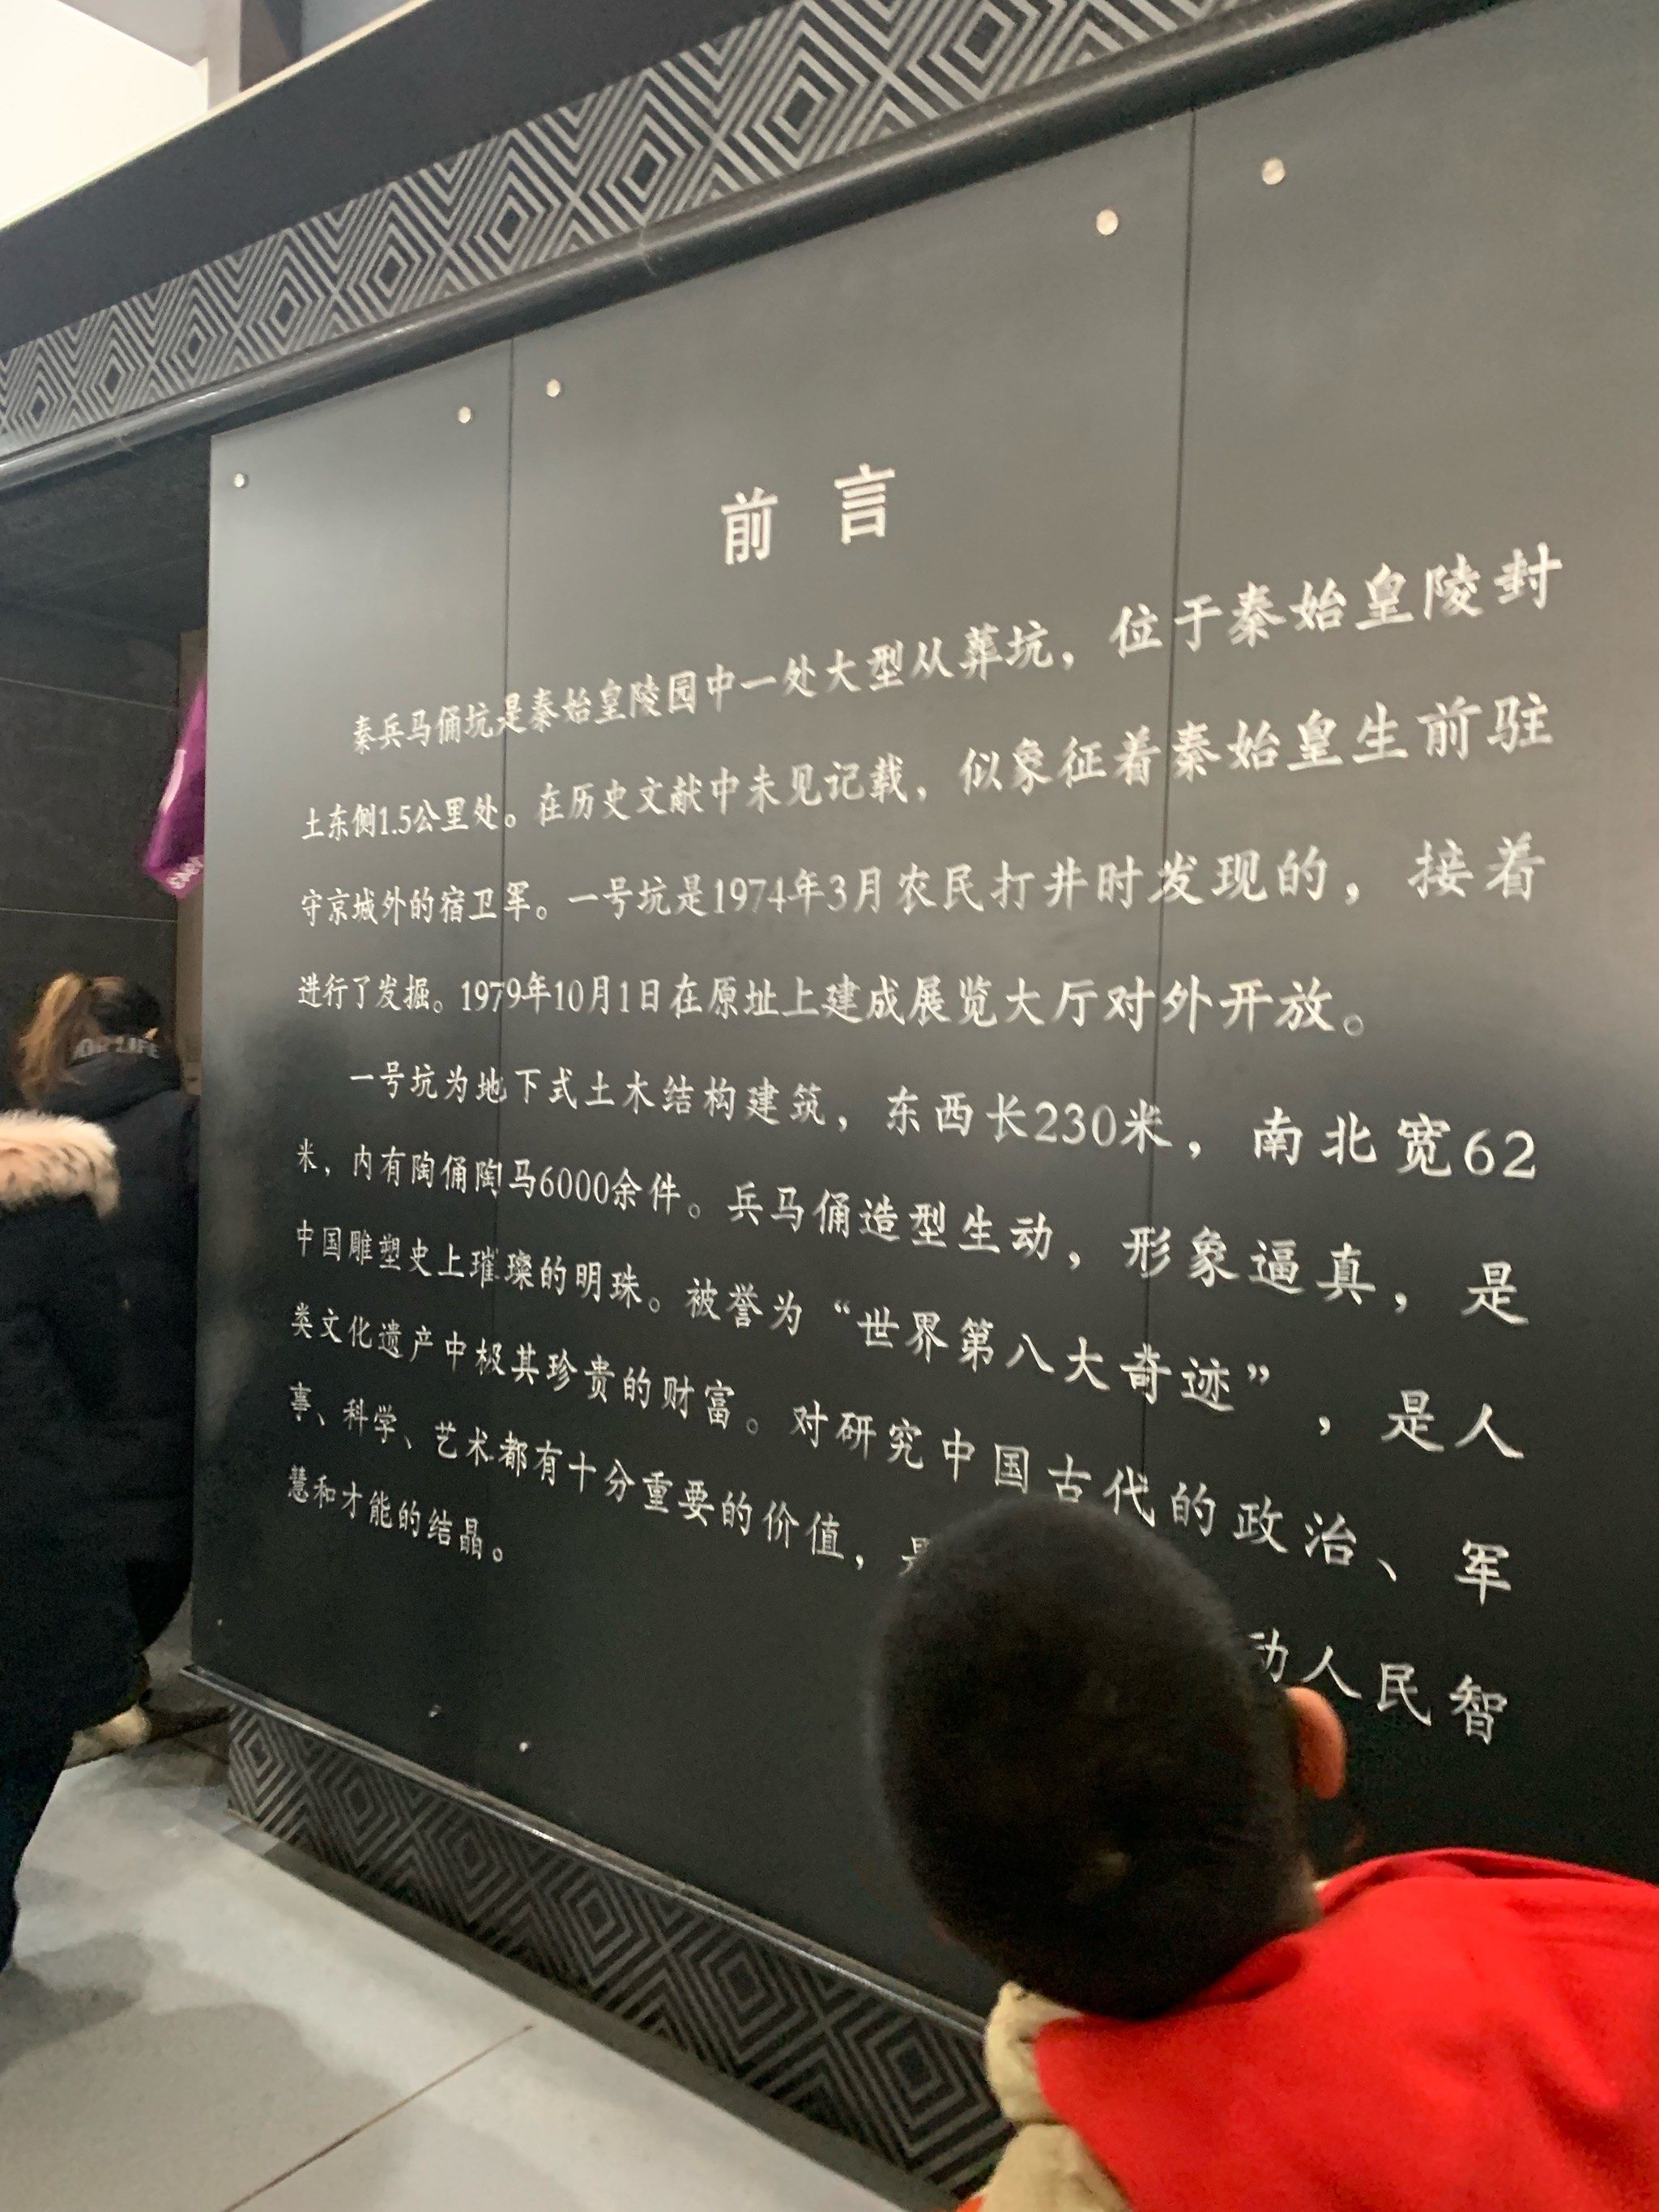 前言
秦兵马俑坑是秦始皇陵园中一处大型从葬坑，位于秦始皇陵封
土东侧1.5公里处。在历史文献中未见记载，似象征着秦始皇生前驻
守京城外的宿卫军。一号坑是1974年3月农民打井时发现的，接着
进行了发掘。1979年10月1日在原址上建成展览大厅对外开放。
一号坑为地下式土木结构建筑，东西长230米，南北宽62
米，内有陶俑陶马6000余件。兵马俑造型生动，形象逼真，是
中国雕塑史上璀璨的明珠。被誉为“世界第八大奇迹”，是人
类文化遗产中极其珍贵的财富。对研究中国古代的政治、军
事、科学、艺术都有十分重要的价值，是 动人民智
慧和才能的结晶。
LIFE